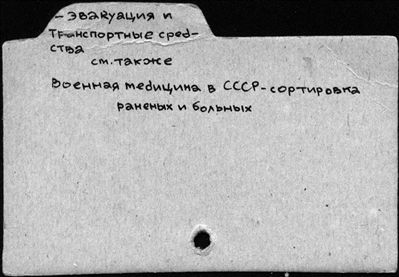 - эвакуация и
транспортные сред-
ства
см. также
Военная медицина в СССР-сортировка
раненых и больных